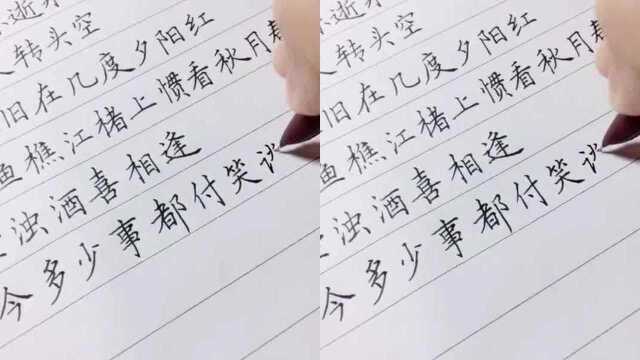 逝
转头空
旧在几度夕阳红
渔樵江楮上惯看秋月春
浊酒喜相逢
今多少事都付笑
逝
转头空
旧在几度夕阳红
渔樵江楮上惯看秋月春
浊酒喜相逢
今多少事都付笑